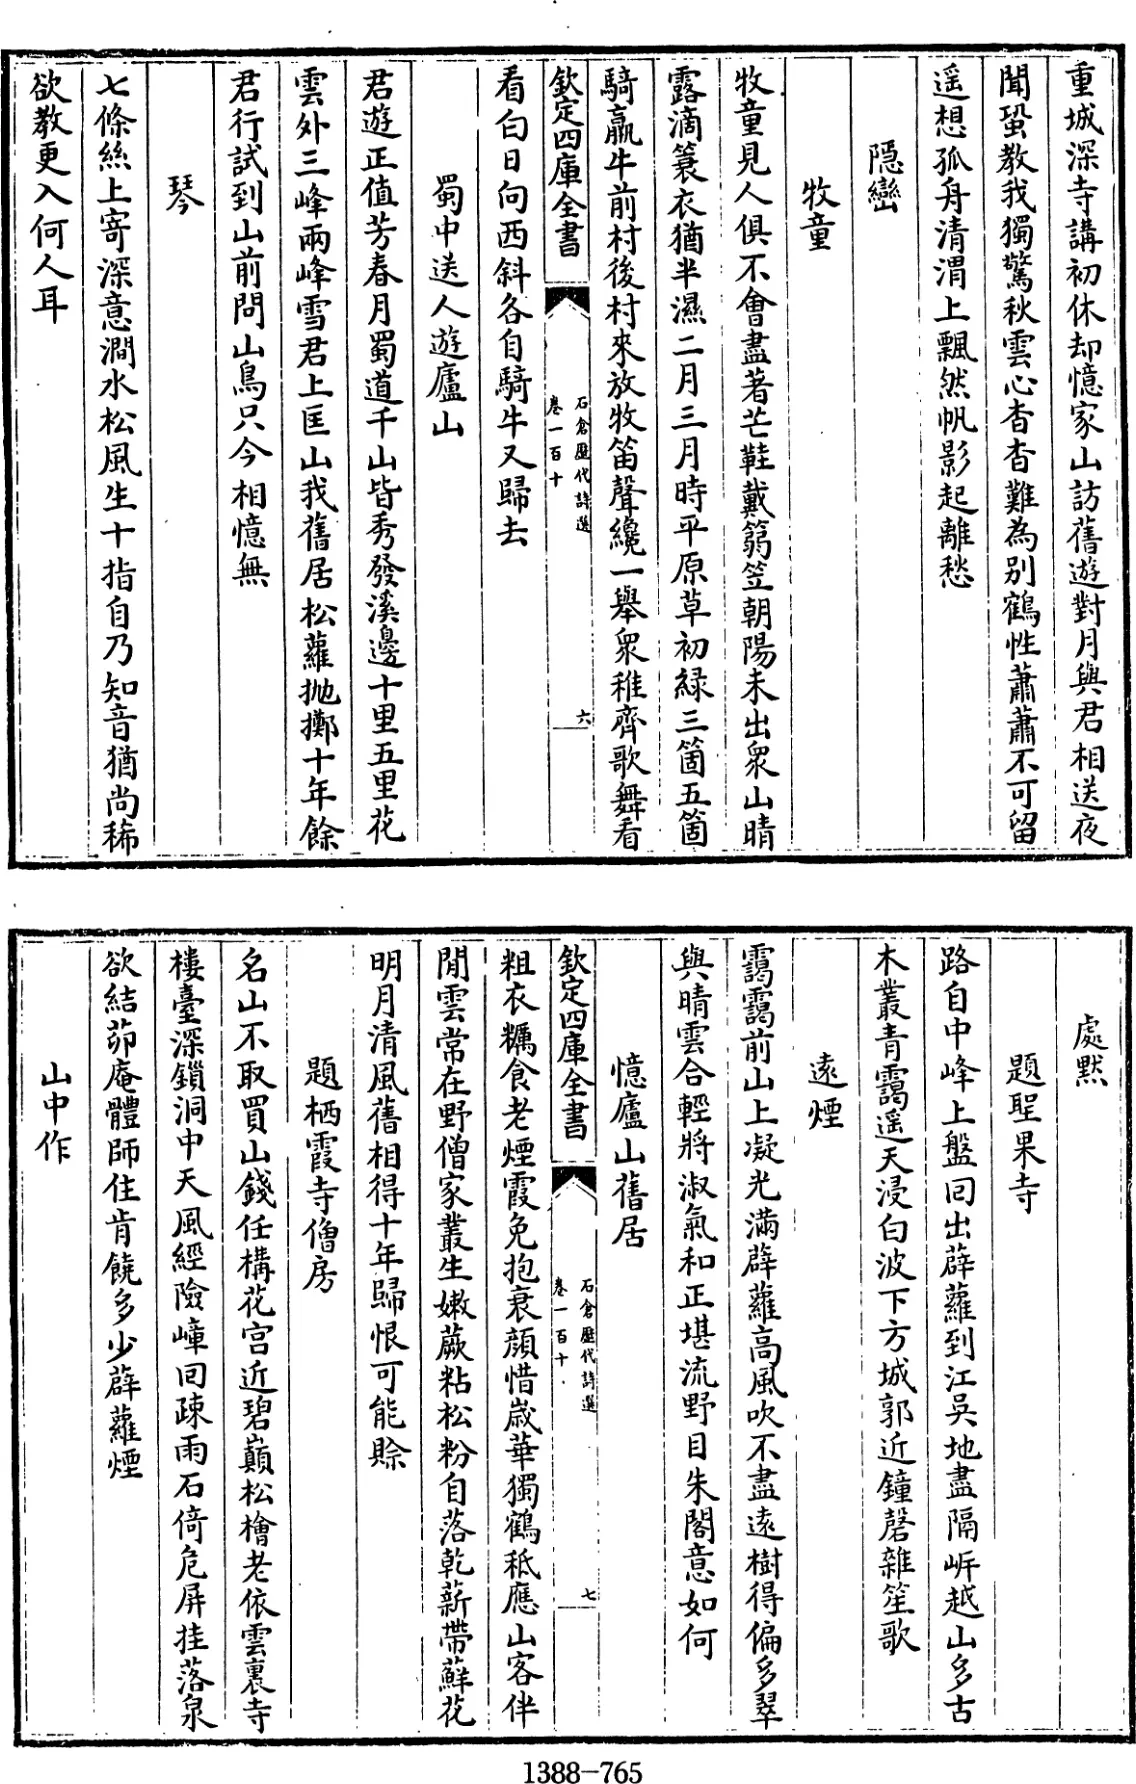 重城深寺講初休却憶家山訪舊遊對月與君相送夜
聞蛩教我獨驚秋雲心杳杳難為別鶴性蕭蕭不可留
遥想孤舟清渭上飄然帆影起離愁
隱巒
牧童
牧童見人俱不會盡著芒鞋戴篛笠朝陽未出衆山晴
露滴簑衣猶半濕二月三月時平原草初緑三箇五箇
騎羸牛前村後村來放牧笛聲纔一舉衆稚齊歌舞看
欽定四庫全書
石倉歷代詩選
卷一百十
六
看白日向西斜各自騎牛又歸去
蜀中送人遊廬山
君遊正值芳春月蜀道千山皆秀發溪邊十里五里花
雲外三峰兩峰雪君上匡山我舊居松蘿抛擲十年餘
君行試到山前問山鳥只今相憶無
琴
七條絲上寄深意澗水松風生十指自乃知音猶尚稀
欲教更入何人耳
處黙
題聖果寺
路自中峰上盤回出薜蘿到江吳地盡隔岸越山多古
木叢青靄遥天浸白波下方城郭近鐘磬雜笙歌
遠煙
靄靄前山上凝光滿薜蘿高風吹不盡遠樹得偏多翠
與晴雲合輕將淑氣和正堪流野目朱閣意如何
憶廬山舊居
欽定四庫全書
石倉歷代詩選
卷一百十
七
粗衣糲食老煙霞免抱衰顔惜歲華獨鶴秪應山客伴
閒雲常在野僧家叢生嫩蕨粘松粉自落乾薪帶蘚花
明月清風舊相得十年歸恨可能賒
題栖霞寺僧房
名山不取買山錢任構花宫近碧巔松檜老依雲裏寺
樓臺深鎖洞中天風經險嶂回疎雨石倚危屏挂落泉
欲結茆庵體師住肯饒多少薜蘿煙
山中作
1388-765